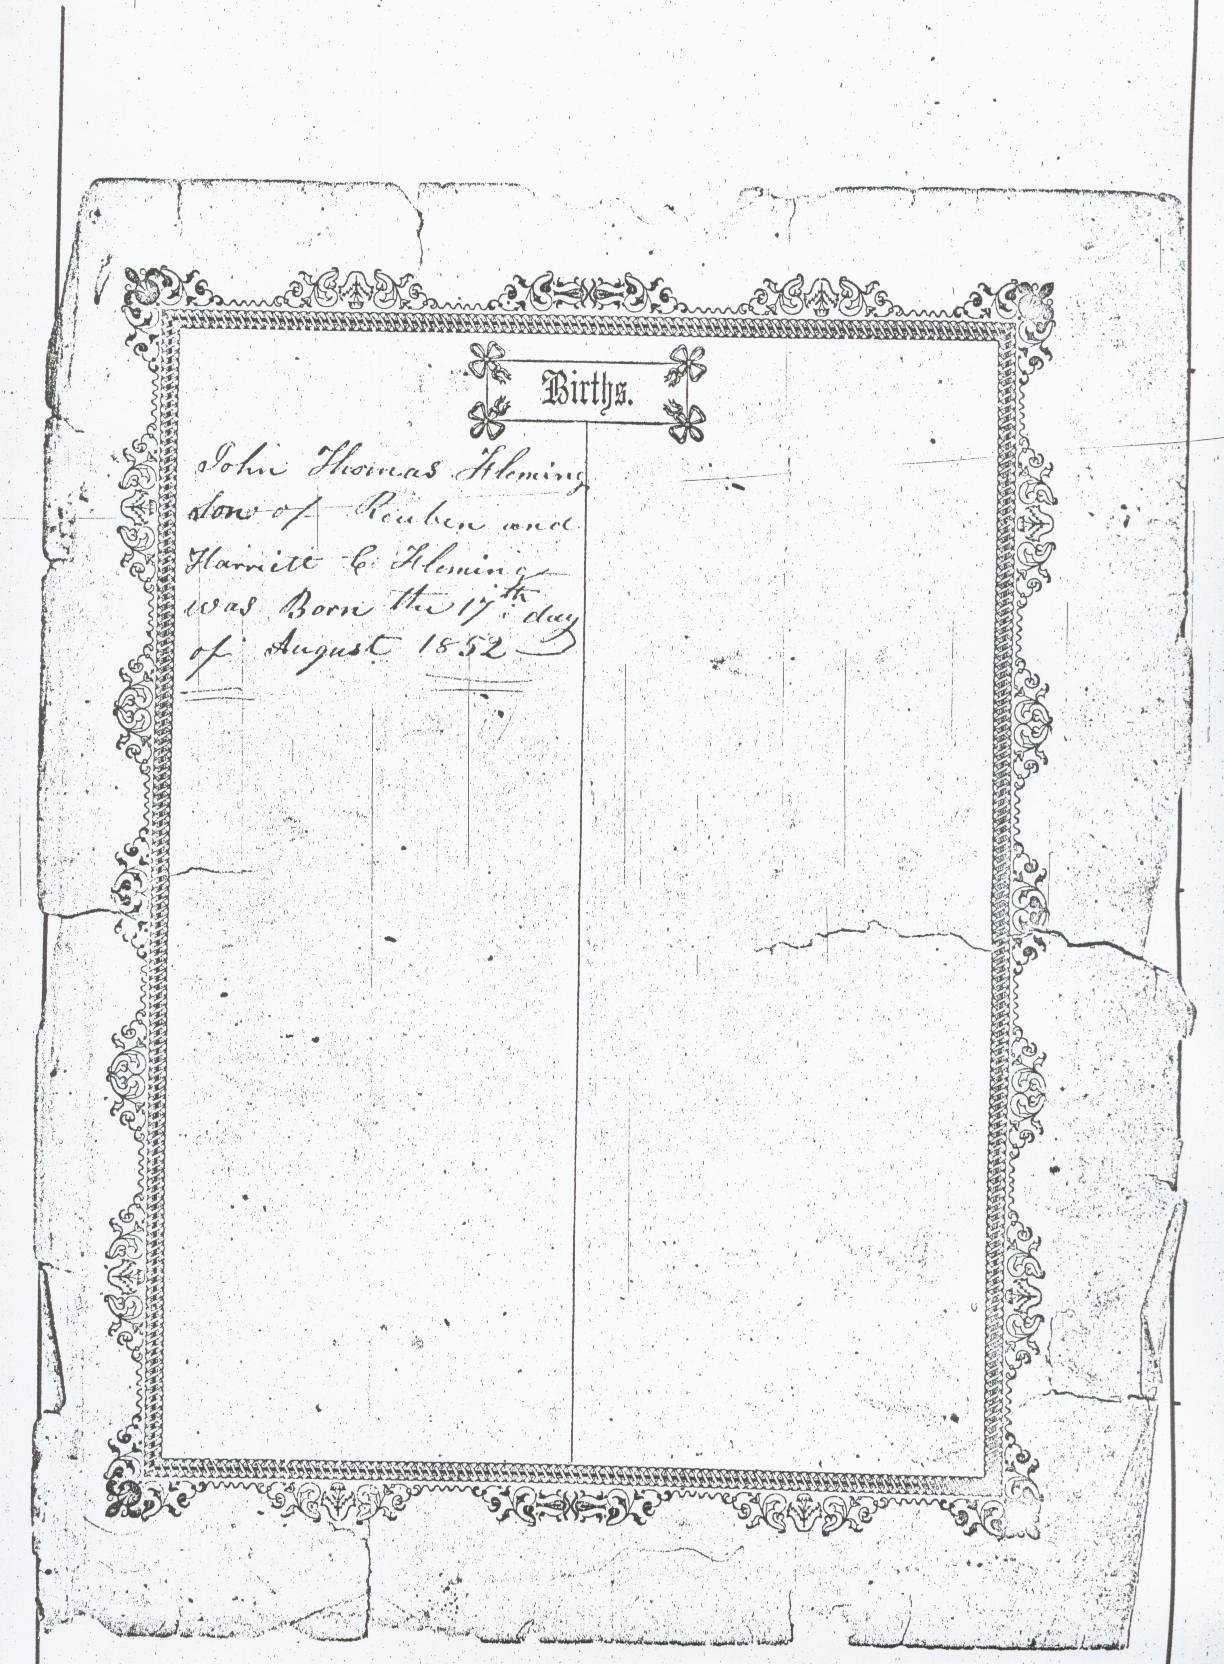 Births.
John Thomas Fleming
Son of Reuben and
Harriett C. Fleming
was Born the 17th day
of August 1852